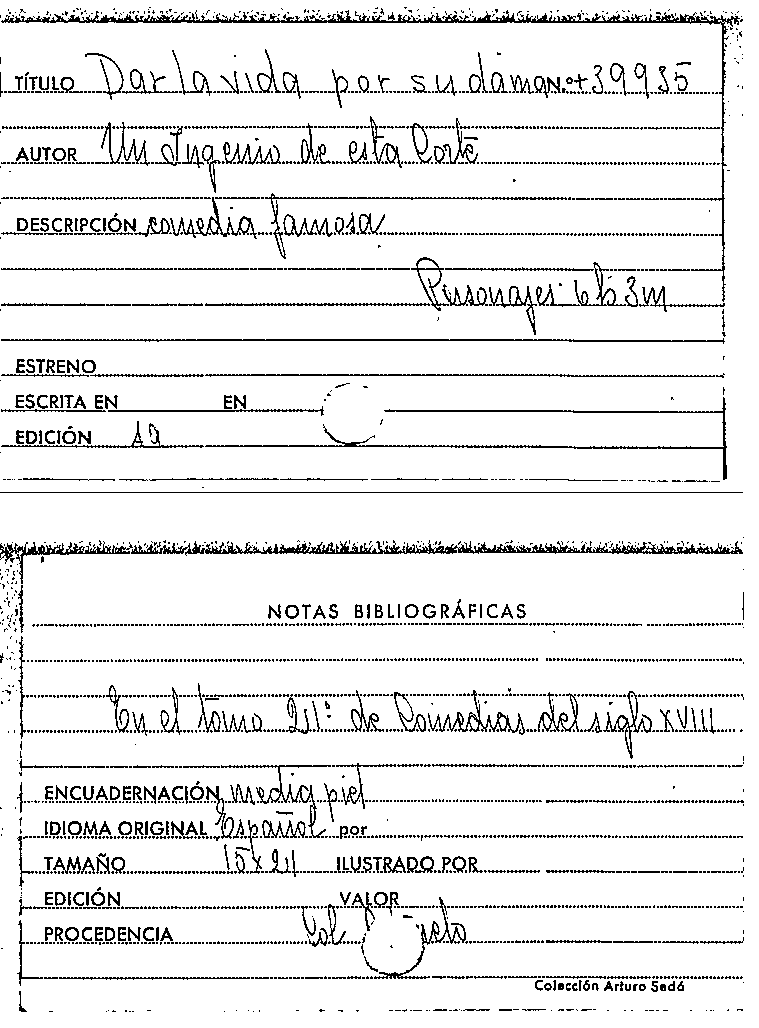 TÍTULO Dar la vida por su dama N.º + 39935
AUTOR Un Ingenio de esta Corte
DESCRIPCIÓN comedia famosa
Personajes: 6 h 3 m
ESTRENO
ESCRITA EN EN
EDICIÓN
NOTAS BIBLIOGRÁFICAS
En el tomo de Comedias del siglo XVIII
ENCUADERNACIÓN media piel
IDIOMA ORIGINAL Español por
TAMAÑO 15 x 21 ILUSTRADO POR
EDICIÓN VALOR
PROCEDENCIA Col
Colección Arturo Sedó